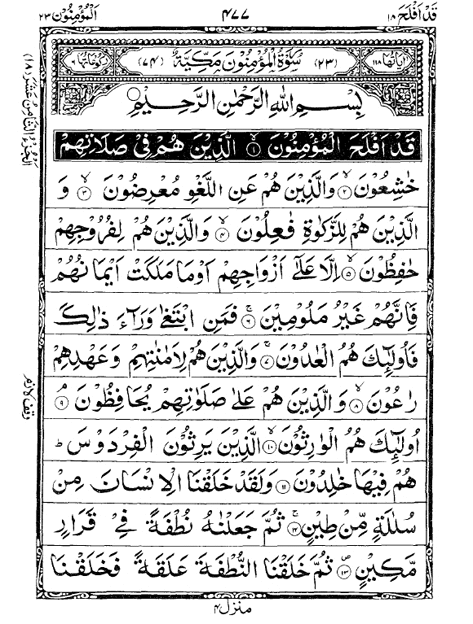 قَدْ اَفْلَحَ ۱۸
۴۷۷
اَلْمُؤْمِنُوْن ۲۳
اٰیَاتُهَا ۱۱۸
(۲۳) سُوْرَةُ الْمُؤْمِنُوْنَ مَكِّيَّةٌ (۷۴)
رُكُوْعَاتُهَا ۶
بِسْمِ اللّٰهِ الرَّحْمٰنِ الرَّحِيْمِ
قَدْ اَفْلَحَ الْمُؤْمِنُوْنَ ۱ الَّذِيْنَ هُمْ فِيْ صَلَاتِهِمْ
خٰشِعُوْنَ ۲ وَالَّذِيْنَ هُمْ عَنِ اللَّغْوِ مُعْرِضُوْنَ ۳ وَ
الَّذِيْنَ هُمْ لِلزَّكٰوةِ فٰعِلُوْنَ ۴ وَالَّذِيْنَ هُمْ لِفُرُوْجِهِمْ
حٰفِظُوْنَ ۵ اِلَّا عَلٰٓى اَزْوَاجِهِمْ اَوْمَا مَلَكَتْ اَيْمَانُهُمْ
فَاِنَّهُمْ غَيْرُ مَلُوْمِيْنَ ۶ فَمَنِ ابْتَغٰى وَرَآءَ ذٰلِكَ
فَاُولٰٓئِكَ هُمُ الْعٰدُوْنَ ۷ وَالَّذِيْنَ هُمْ لِاَمٰنٰتِهِمْ وَعَهْدِهِمْ
رٰعُوْنَ ۸ وَالَّذِيْنَ هُمْ عَلٰى صَلَوٰتِهِمْ يُحَافِظُوْنَ ۹
اُولٰٓئِكَ هُمُ الْوٰرِثُوْنَ ۱۰ الَّذِيْنَ يَرِثُوْنَ الْفِرْدَوْسَ ط
هُمْ فِيْهَا خٰلِدُوْنَ ۱۱ وَلَقَدْ خَلَقْنَا الْاِنْسَانَ مِنْ
سُلٰلَةٍ مِّنْ طِيْنٍ ۱۲ ثُمَّ جَعَلْنٰهُ نُطْفَةً فِيْ قَرَارٍ
مَّكِيْنٍ ۱۳ ثُمَّ خَلَقْنَا النُّطْفَةَ عَلَقَةً فَخَلَقْنَا
منزل ۴
اَلْجُزْءُ الثَّامِنَ عَشَرَ (۱۸)
وقف لازم